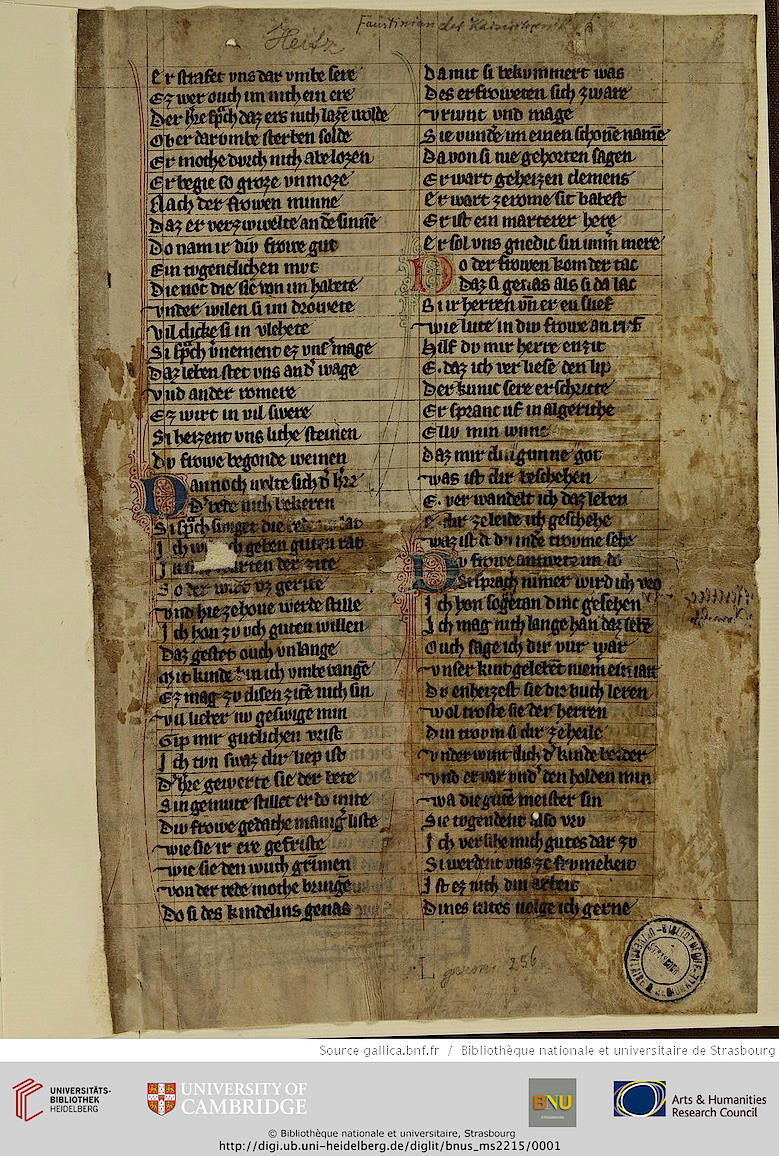 Faustinian der Kaiserchronik
Heitz
Er strafet vns dar vmbe sere
Ez wer ouch im nich ein ere
Der hre sprch daz ers nich lazē wolde
Ob er dar vmbe sterben solde
Er mothe dvrch nich abe lozen
Er begie so groze vnmoze
Nach der frowen minne
Daz er verzwiuelte an dē sinnē
Do nam ir div frowe gut
Ein tvgentlichen mvt
Die not die sie von im habete
vnder wilen si im drowete
vil dicke si in vlehete
Si sprch vnement ez vnser mage
Daz leben stet vns and wage
vnd ander romere
Ez wirt in vil swere
Si heizent vns lihte steinen
Dv frowe begonde weinen
Dannoch wolte sich d hre
Dˢ rede nich bekeren
Si sprch swiget die rede
Ich geben guten rat
der zite
So der
vnd hie zehoue werde stille
Ich hon zv vch guten willen
Daz gestet ouch vnlange
Mit kinde bin ich vmbe vangē
Ez mag zv disen zitē nich sin
vil lieber nv geswige min
Gip mir gutlichen vrist
Ich tvn swaz dir liep ist
Dˢ hre gewerte sie der bete
Sin gemute stillet er do mite
Div frowe gedahte manig liste
wie sie ir ere gefriste
wie sie den wuch grimen
von der rede mothe bringē
Do si des kindelins genas
Da mit si bekummert was
Des erfroweten sich zware
vrivnt vnd mage
Sie vunde im einen schonē namē
Da von si nie gehorten sagen
Er wart geheizen clemens
Er wart ze rome sit babest
Er ist ein marterer here
Er sol vns gnedic sin imm mere
Do der frowen kom der tac
Daz si genas als si da lac
Bi ir herren vn er en slief
wie lute in div frowe an rief
Hilf dv mir herre enzit
E. daz ich ver liese den lip
Der kunic sere erschricte
Er spranc uf in algeriche
Ellv min wnne
Daz mir din gunne got
was ist dir beschehen
E. ver wandelt ich daz leben
E. dir ze leide ich geschehe
waz ist d dv inde trovme sehe
Dv frowe antwrte im do
Si sprach nimer wird ich vro
Ich hon sogetan dinc gesehen
Ich mag nich lange han daz lebē
Ouch sage ich dir vur war
vnser kint gelebēt niem ein iar
Dv enheizest sie dir buch leren
wol troste sie der herren
Din trovm si dir ze heile
vnder wint dich d kinde beider
vnd er var vnd den holden min
wa die gutē meister sin
Sie tvgendent also vrv
Ich versihe mich gutes dar zv
Si werdent vns ze frvmekeit
Ist ez nich din arbeit
Dines rates uolge ich gerne
L germ 256
Source gallica.bnf.fr / Bibliothèque nationale et universitaire de Strasbourg
UNIVERSITÄTS-
BIBLIOTHEK
HEIDELBERG
UNIVERSITY OF
CAMBRIDGE
BNU
Arts & Humanities
Research Council
© Bibliothèque nationale et universitaire, Strasbourg
http://digi.ub.uni-heidelberg.de/diglit/bnus_ms2215/0001